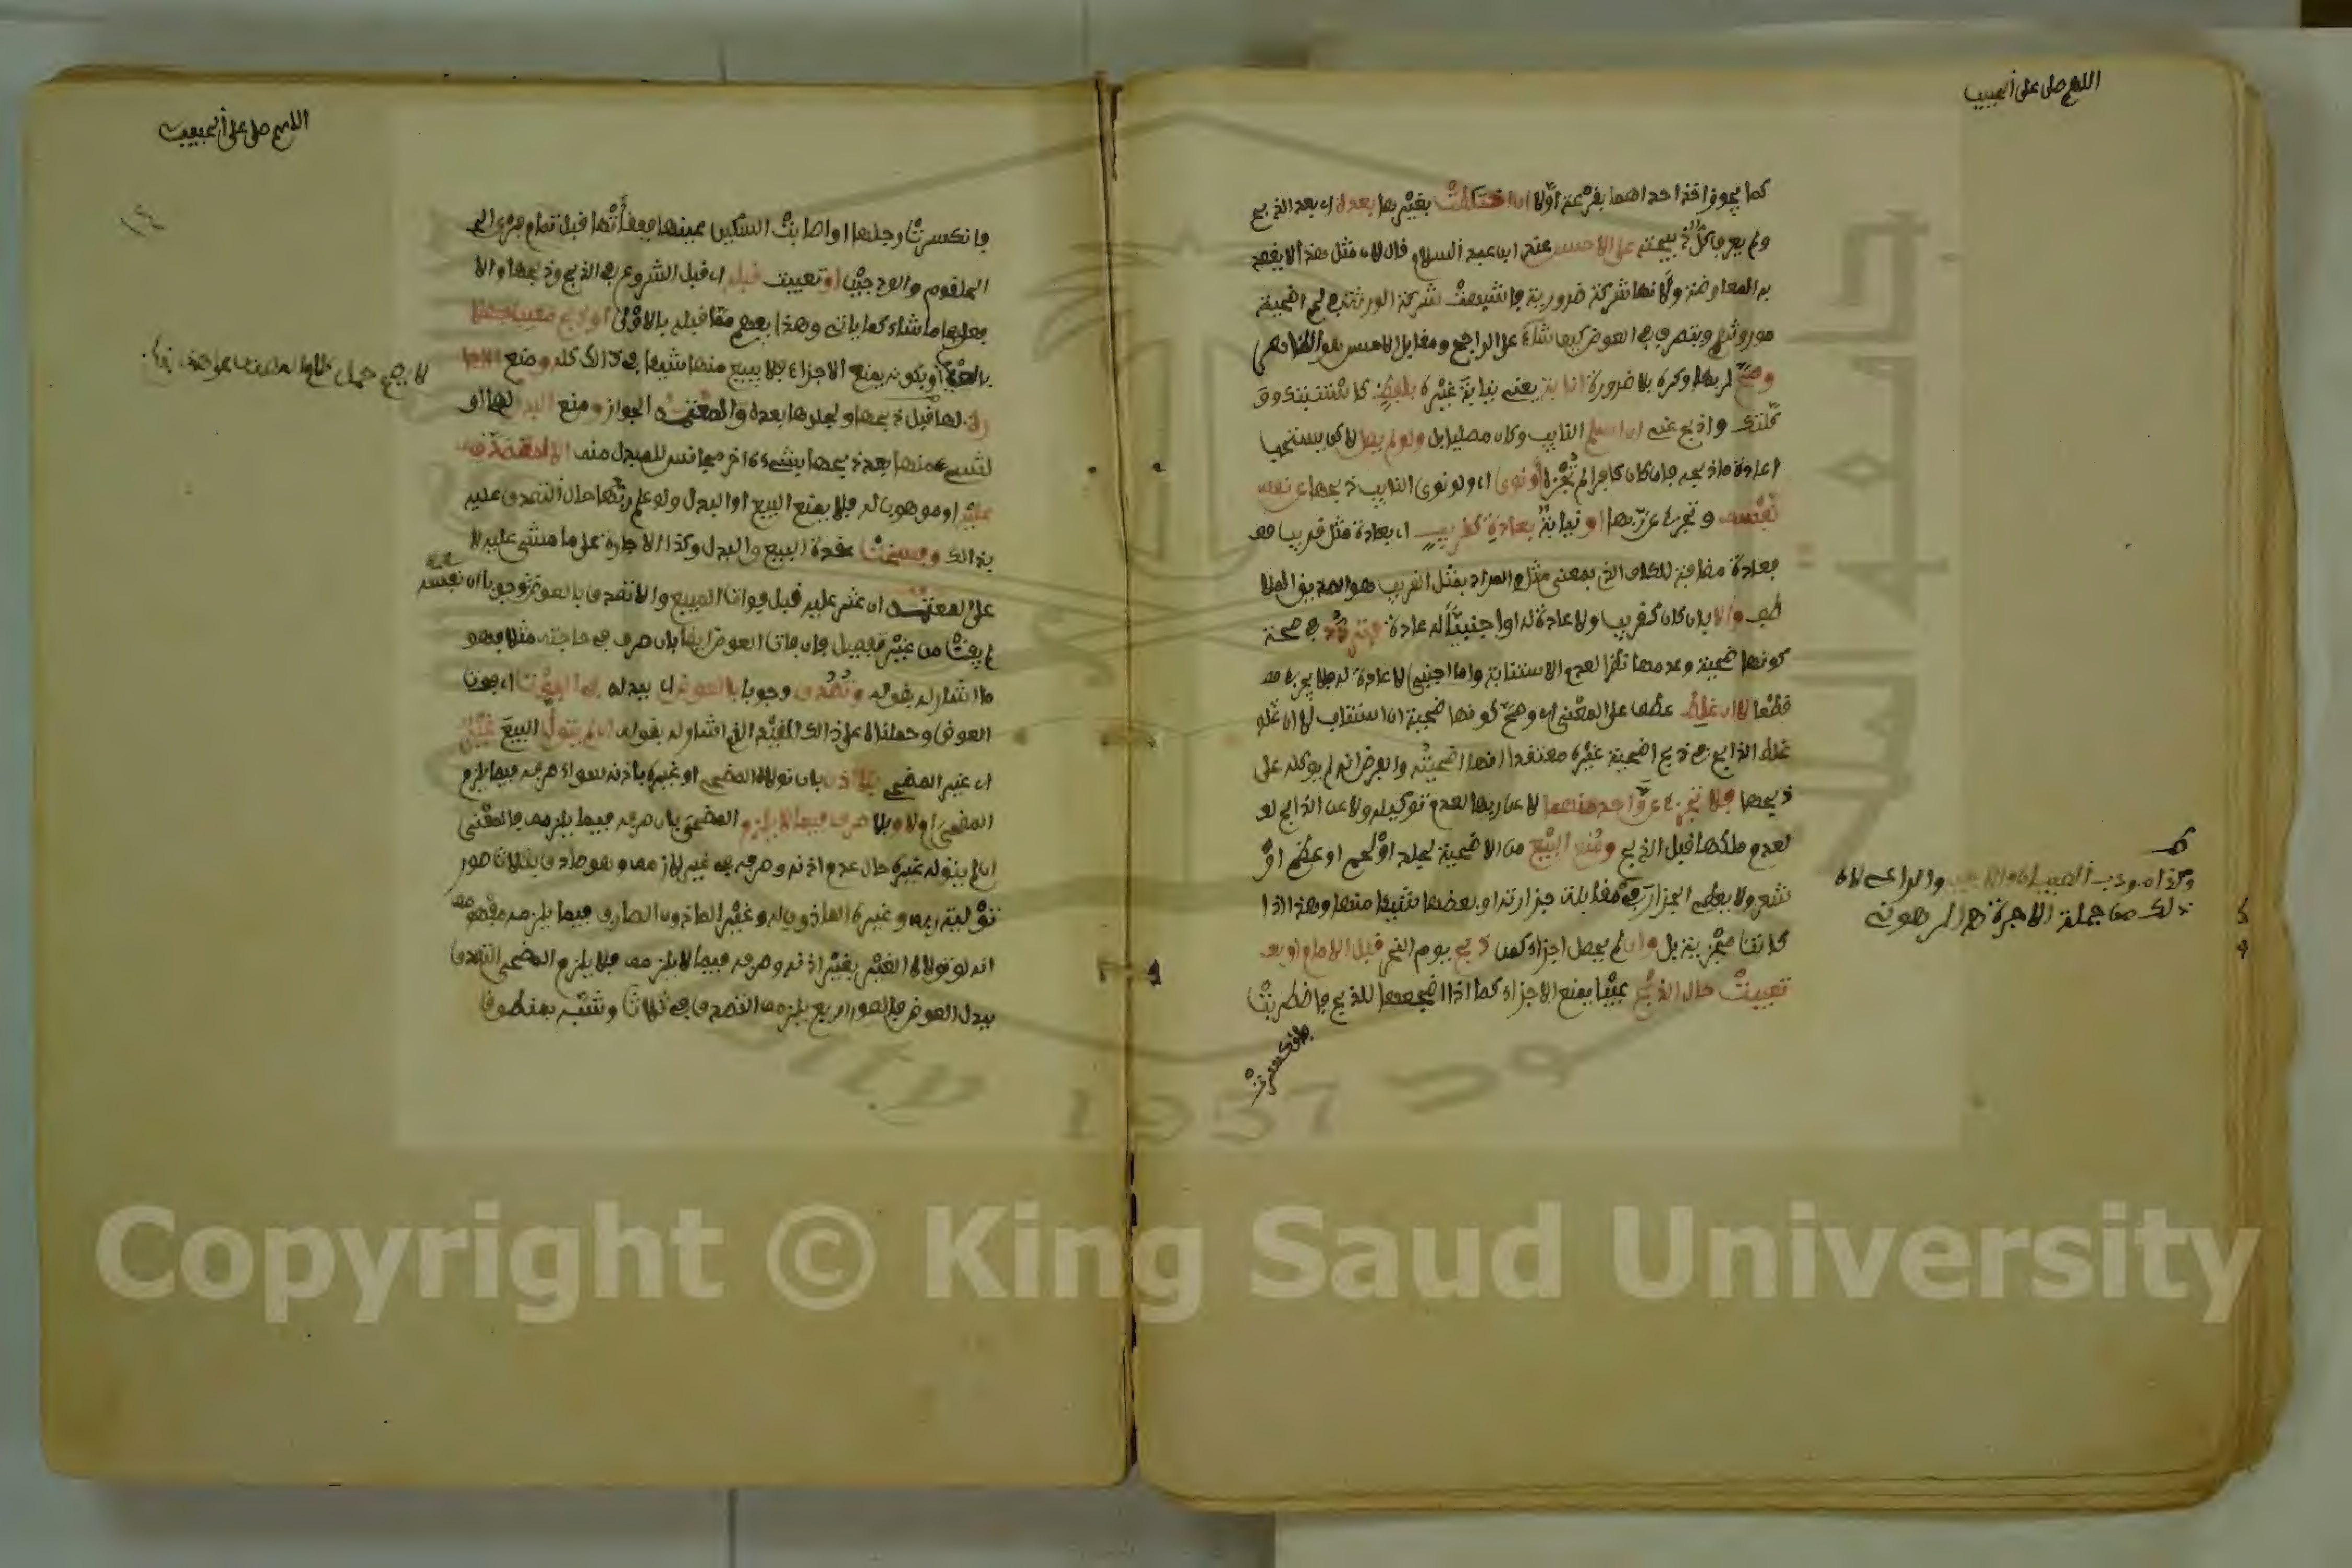 اللهم صل على الحبيب
كما يجوز اخذ احداهما بقرعة اولا ان اختلطت بغيرها بعده اي بعد الذبح
ولم يعرف كل ذبيحته على الاحسن عند ابن عبد السلام قال لان مثل هذا لا يقصد
به المعاوضة ولانها شركة ضرورية فاشبهت شركة الورثة في لحم اضحية
مورثهم ويتصرف في العوض كيف شاء على الراجح ومقابل الاحسن
وصح لربها وكره بلا ضرورة انابة يعني نيابة غيره بلفظ كاستنبتك و
وكلتك واذبح عني ان اسلم النايب وكان مصليا بل ولو لم يصل لاكن يستحب
اعادة ما ذبحه فان كان كافرا لم تجزه او نوى اي ولو نوى النايب ذبحها عن نفسه
نفسه وتجزي عن ربها او نيابة بعادة كقريب اي بعادة مثل قريب
فعادة مضافة للكاف الذي بمعنى مثل والمراد بمثل القريب هو الصديق الملا
طف والا بان كان كقريب ولا عادة له او اجنبيا له عادة فتردد في صحة
كونها ضحية وعدمها نظرا لعدم الاستنابة واما اجنبي لا عادة له فلا يجزي
قطعا لا ان غلط عطف على المعنى اي وصح كونها ضحية ان استناب لا ان غلط
غلط الذابح في ذبح اضحية غيره معتقدا انها اضحيته والفرض انه لم يوكله على
ذبحها فلا تجزي عن واحد منهما لا عن ربها لعدم توكيله ولا عن الذابح لـ
لعدم ملكها قبل الذبح ومنع البيع من الاضحية لجلد او لحم او عظم او
شعر ولا يعطي الجزار في مقابلة جزارته او بعضها شيئا منها وهذا اذا
كانت مجزية بل وان لم يحصل اجزاء كمن ذبح يوم النحر قبل الامام او بعد
تعيبت حال الذبح عيبا يمنع الاجزاء كما اذا اضجعها للذبح فاضطربت
فانكسرت
والراعي لان
ذلك من جملة الاجرة
اللهم صل على الحبيب
١٤
فانكسرت رجلها او اصابت السكين عينها ففقأتها قبل تمام فري
الحلقوم والودجين او تعيبت قبله اي قبل الشروع في الذبح وذبحها والا
فعل بها ما شاء كما ياتي وهذا يفهم مما قبله بالاولى او ذبح معيبا جهلا
بالعيب او بكونه يمنع الاجزاء فلا يبيع منها شيئا في ذالك كله ومنع الاجا
رة لها قبل ذبحها ولجلدها بعده والمعتمد الجواز ومنع البدل لها او
لشيء منها بعد ذبحها بشيء اخر مجانس للمبدل منه الا لمتصدق
عليه او موهوب له فلا يمنع البيع او البدل ولو علم ربها حال التصدق عليه
بذالك وفسخت عقدة البيع والبدل وكذا الاجارة على ما مشى عليه لا
على المعتمد ان عثر عليه قبل فوات المبيع والا تصدق بالعوض وجوبا ان
لم يفت من غير تفصيل فان فات العوض ايضا بان صرف في حاجته مثلا فهو
ما اشار له بقوله وتصدق وجوبا بالعوض اي ببدله ان فات اي فوت
العوض وحملناه على ذالك المقيد الذي اشار له بقوله ان لم يتول البيع غير
اي غير المضحي بلا اذن بان تولاه المضحي او غيره باذنه سواء صرفه فيما يلزم
المضحي او لا وبلا صرف فيما لا يلزم المضحي بان صرفه فيما يلزمه فالمعنى
ان لم يتوله غيره حال عدم اذنه وصرفه في غير لازمه وهو صادق بثلاث صور
تولية ربه وغيره الماذون له وغير الماذون الصارف فيما يلزمه
انه لو تولاه الغير بغير اذنه وصرفه فيما لا يلزمه فلا يلزم المضحي التصدق
ببدل العوض فالصور اربع يلزمه التصدق في ثلاث وشبه بمنطوق
Copyright © King Saud University
1957